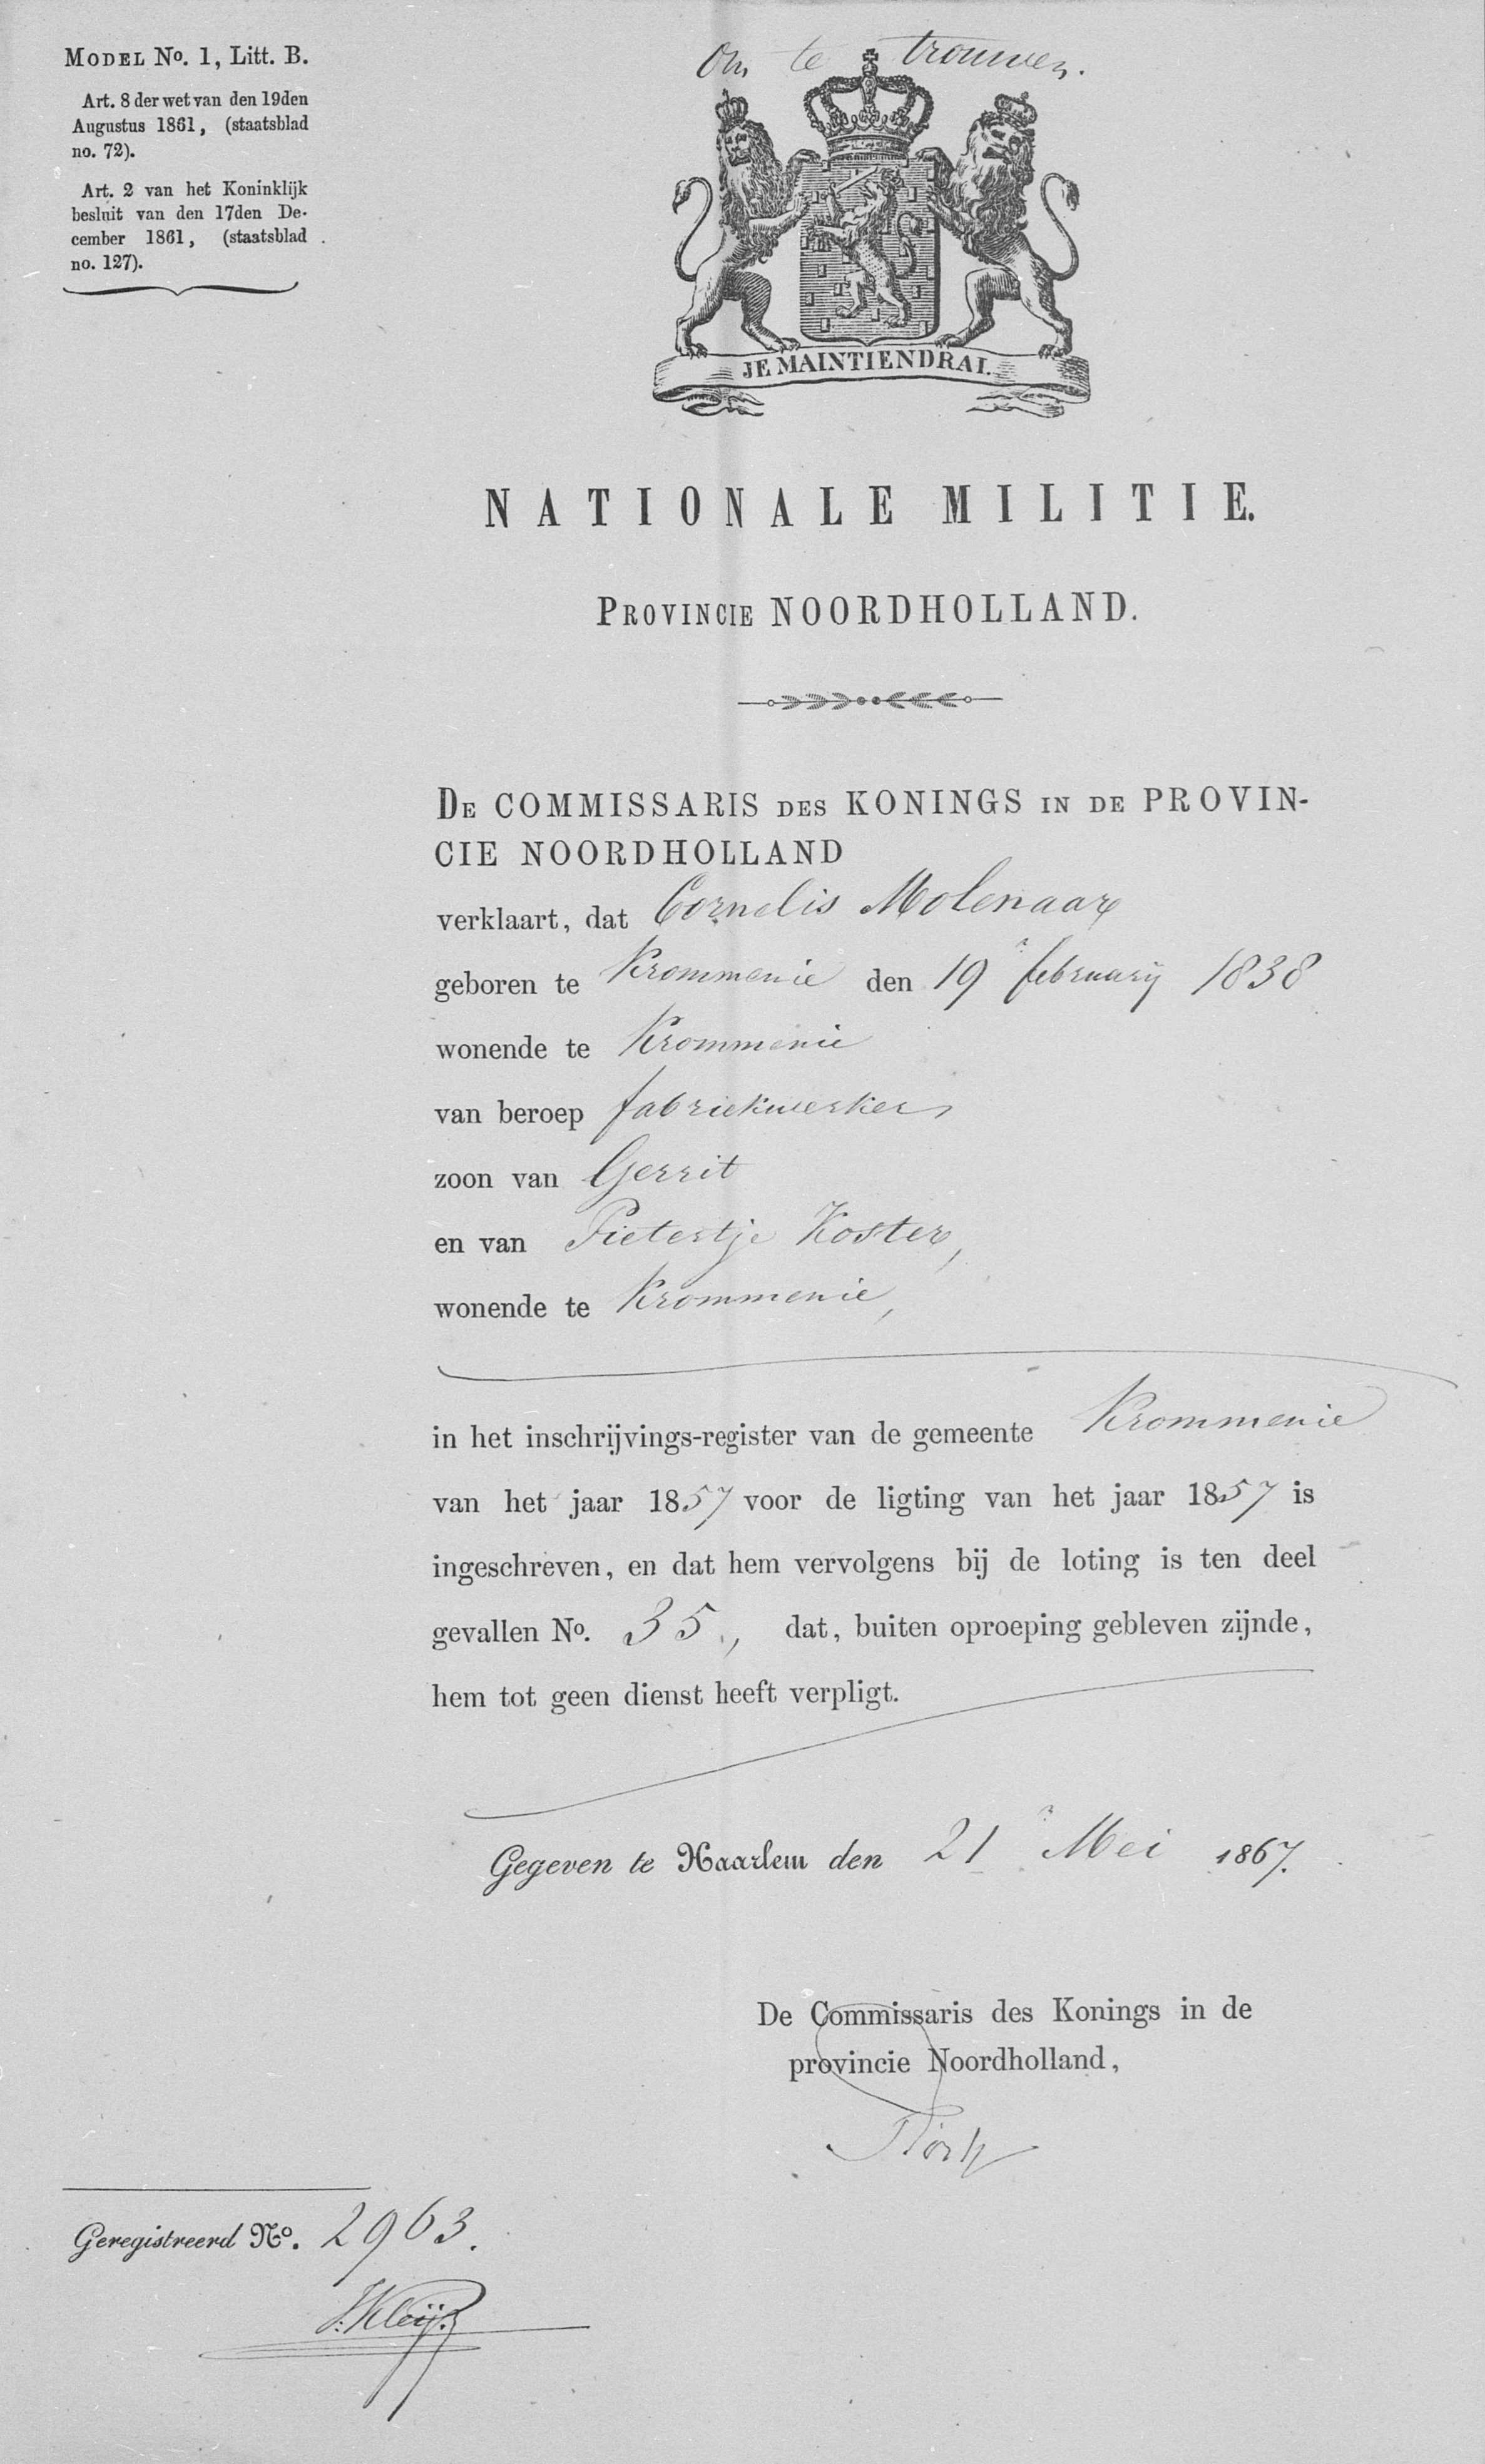 MODEL No. 1, Litt. B.
Art. 8 der wet van den 19den
Augustus 1861, (staatsblad
no. 72).
Art. 2 van het Koninklijk
besluit van den 17den De-
cember 1861, (staatsblad
no. 127).
Om te trouwen.
JE MAINTIENDRAI.
NATIONALE MILITIE.
PROVINCIE NOORDHOLLAND.
DE COMMISSARIS DES KONINGS IN DE PROVIN-
CIE NOORDHOLLAND
verklaart, dat Cornelis Molenaar
geboren te Krommenie den 19 february 1838
wonende te Krommenie
van beroep fabriekwerker
zoon van Gerrit
en van Pietertje Koster,
wonende te Krommenie,
in het inschrijvings-register van de gemeente Krommenie
van het jaar 1857 voor de ligting van het jaar 1857 is
ingeschreven, en dat hem vervolgens bij de loting is ten deel
gevallen No. 35, dat, buiten oproeping gebleven zijnde,
hem tot geen dienst heeft verpligt.
Gegeven te Haarlem den 21 Mei 1867.
De Commissaris des Konings in de
provincie Noordholland,
Geregistreerd No. 2963.